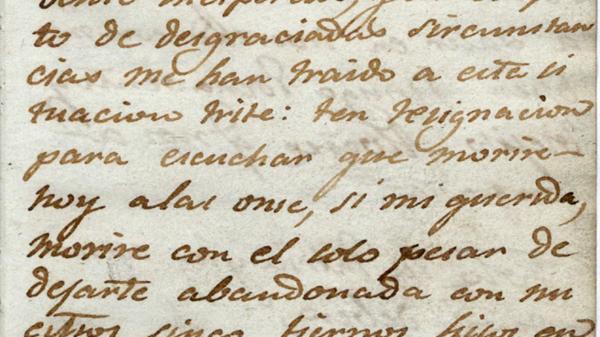 to de desgraciadas sircunstan
cias me han traido a esta si
tuacion trite: ten resignacion
para escuchar que morire
hoy a las onse, si mi querida,
morire con el solo pesar de
dejarte abandonada con nu
estros sinco tiernos hijos en